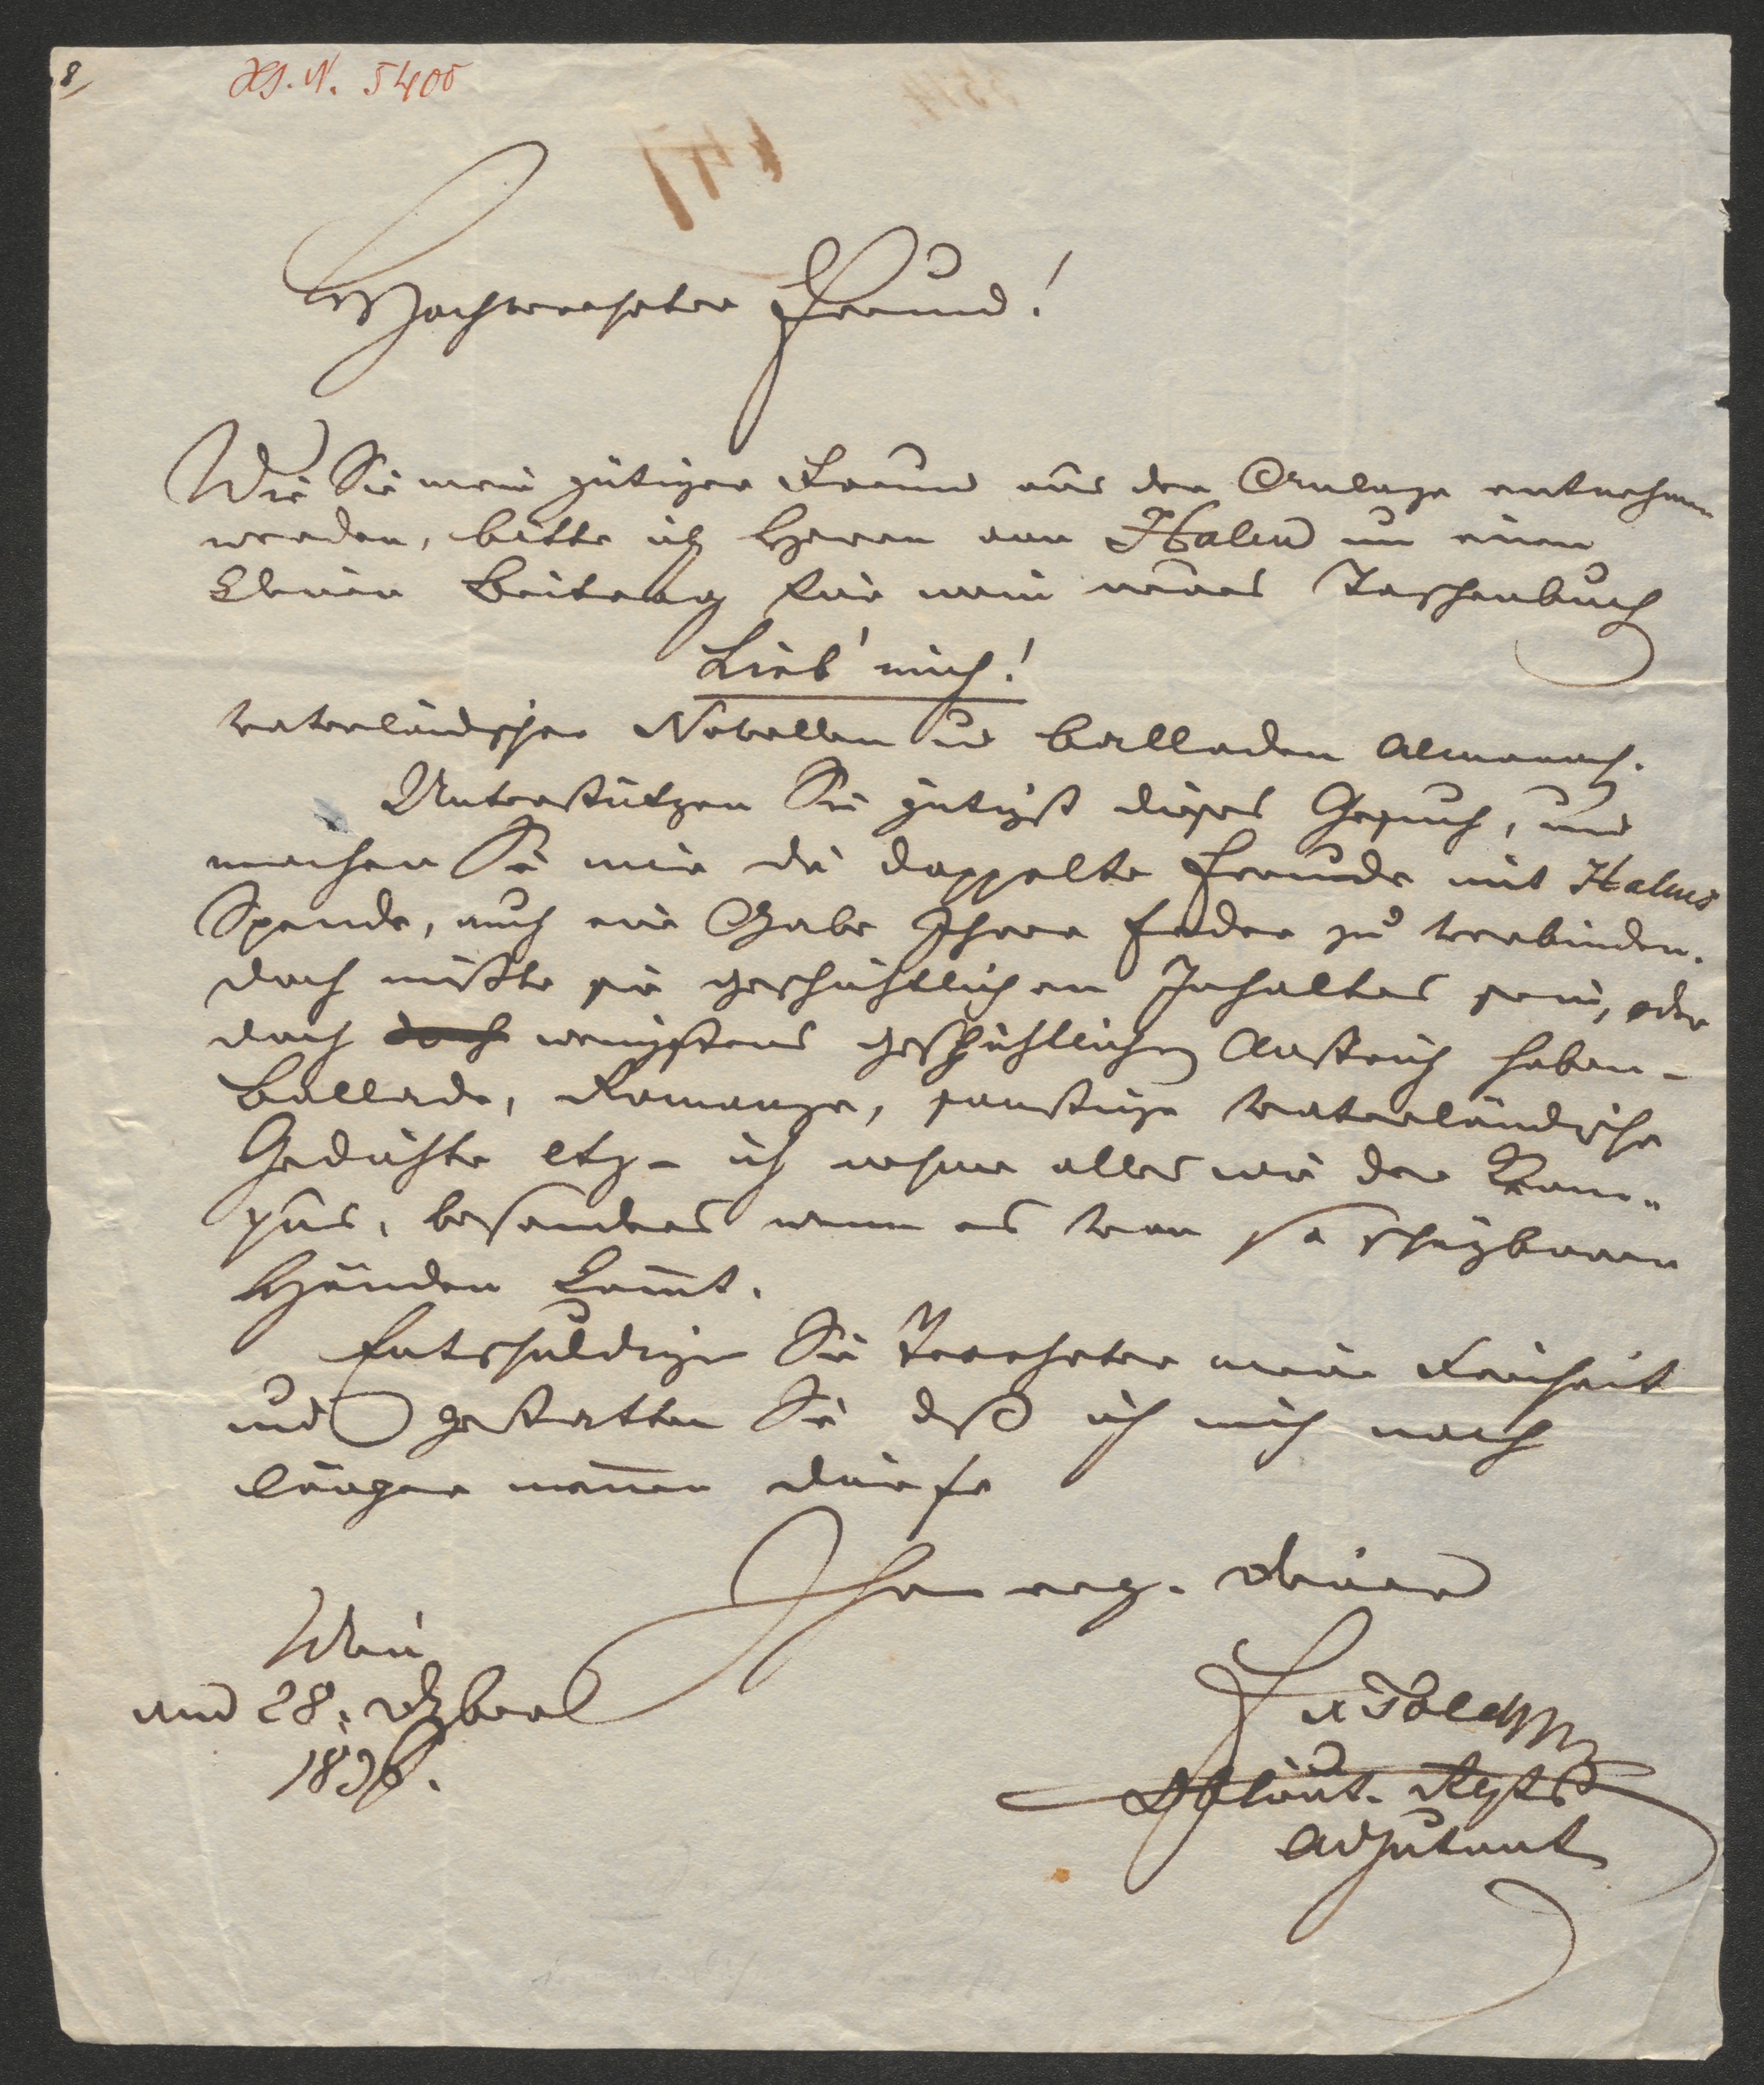 8/
HS. N. 5400
Hochverehrter Freund!
Wie Sie mein gütiger Freund aus der Anlage entnehmen
werden, bitte ich Herrn von Halm um einen
kleinen Beitrag für mein neues Taschenbuch
Lieb' mich!
vaterländischer Novellen und Balladen Almanach.
Unterstützen Sie gütigst dieses Gesuch, und
machen Sie mir die doppelte Freude mit Halms
Spende, auch eine Gabe Ihrer Feder zu verbinden.
doch müßte sie geschichtlichen Inhaltes sein, oder
doch doch wenigstens geschichtlichen Anstrich haben –
Ballade, Romanze, sonstige vaterländische
Gedichte etz – ich nehme alles wie der
besonders wenn es von so schäzbaren
Händen komt.
Entschuldigen Sie Verehrter meine Freiheit
und gestatten Sie daß ich mich noch
länger nennen dürfe
Ihren erg. Diener
Wien
am 28. Dzber
183
Toldy
Adjutant